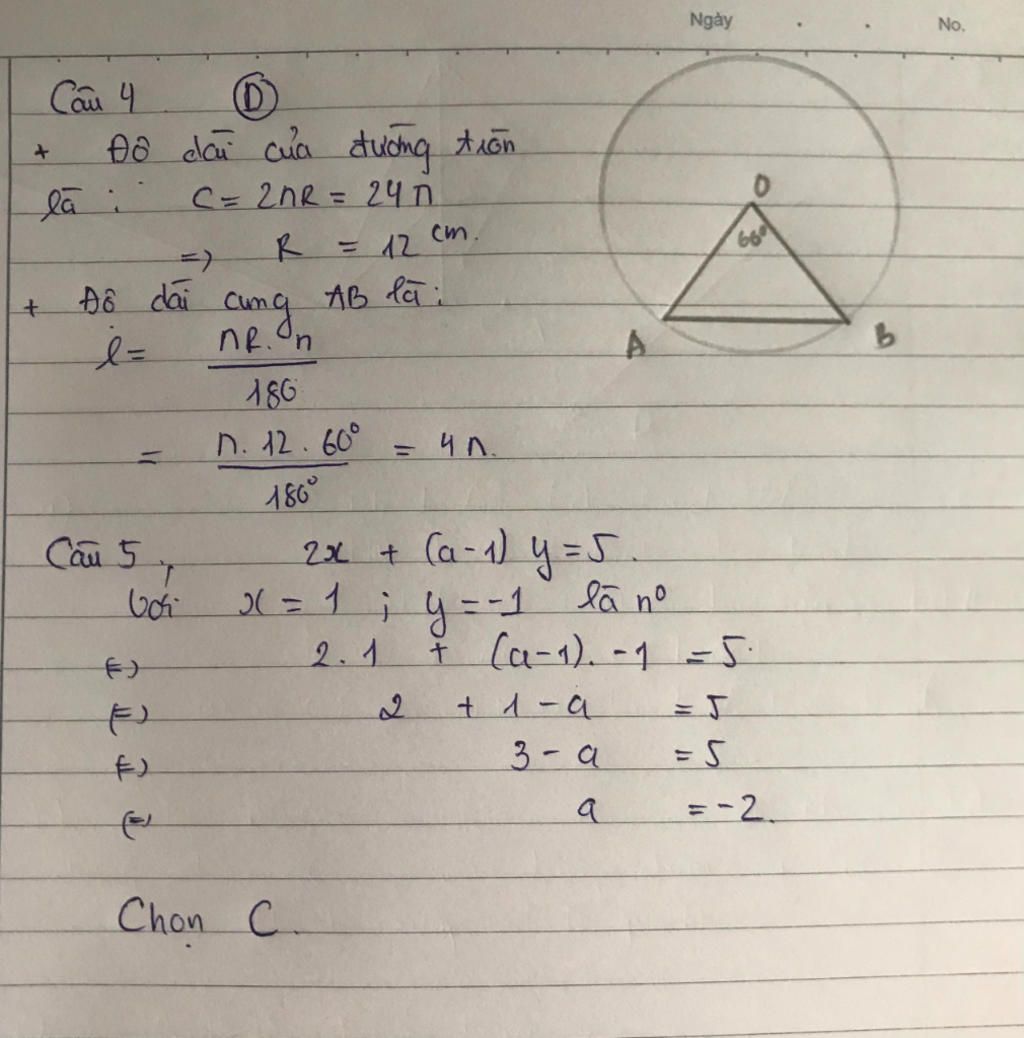 Ngày . . No.
Câu 4 D
+ Độ dài của đường tròn
là : C = 2πR = 24π
=> R = 12 cm.
+ Độ dài cung AB là :
l = πR.n / 180
= π.12.60° / 180° = 4π.
O
60°
A B
Câu 5, 2x + (a-1) y = 5.
Với x = 1 ; y = -1 là n°
<=> 2.1 + (a-1). -1 = 5.
<=> 2 + 1 - a = 5
<=> 3 - a = 5
<=> a = -2.
Chọn C.